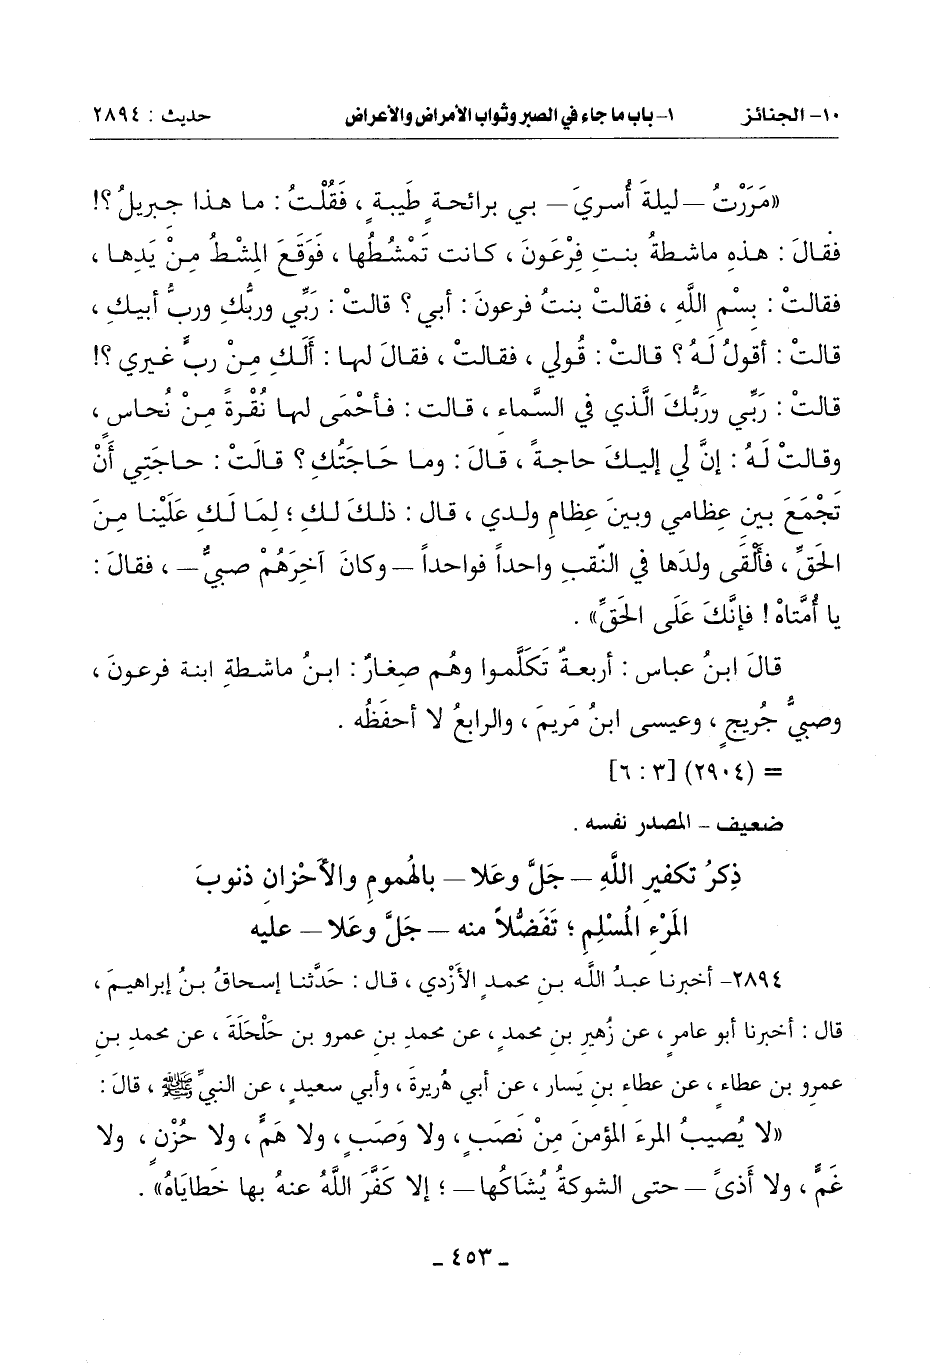 ١٠- الجنائز ١- باب ما جاء في الصبر وثواب الأمراض والأعراض حديث : ٢٨٩٤
«مَرَرْتُ – ليلةَ أُسريَ – بي برائحةٍ طَيبةٍ ، فَقُلْتُ : ما هذا جبريلُ ؟!
فقالَ : هذهِ ماشطةُ بنتِ فِرْعَونَ ، كانت تَمْشُطُها ، فَوَقَعَ المِشْطُ مِنْ يَدِها ،
فقالتْ : بِسْمِ اللَّهِ ، فقالتْ بنتُ فرعونَ : أبي ؟ قالتْ : رَبِّي وربُّكِ وربُّ أبيكِ ،
قالتْ : أقولُ لَهُ ؟ قالتْ : قُولي ، فقالتْ ، فقالَ لها : أَلَكِ مِنْ ربٍّ غيري ؟!
قالتْ : رَبِّي ورَبُّكَ الَّذي في السَّماءِ ، قالت : فأحْمَى لها نُقْرةً مِنْ نُحاسٍ ،
وقالتْ لَهُ : إنَّ لي إليكَ حاجةً ، قالَ : وما حَاجَتُكِ ؟ قالَتْ : حاجَتِي أَنْ
تَجْمَعَ بين عِظامي وبينَ عِظامِ ولدي ، قال : ذلكَ لكِ ؛ لِمَا لَكِ عَلَيْنا مِنَ
الحَقِّ ، فأَلْقَى ولدَها في النَّقبِ واحداً فواحداً – وكانَ آخِرَهُمْ صبيٌّ – ، فقالَ :
يا أُمَّتاهْ ! فإنَّكَ عَلَى الحَقِّ» .
قالَ ابنُ عباس : أربعةٌ تَكَلَّموا وهُم صِغارٌ : ابنُ ماشطةِ ابنة فرعونَ ،
وصبيُّ جُريجٍ ، وعيسى ابنُ مَريمَ ، والرابعُ لا أحفَظُه .
= (٢٩٠٤) [٣ : ٦]
ضعيف – المصدر نفسه .
ذِكرُ تكفيرِ اللَّهِ – جَلَّ وعَلا – بالهُمومِ والأَحْزانِ ذنوبَ
المَرْءِ المُسْلِمِ ؛ تَفَضُّلاً منه – جَلَّ وعَلا – عليه
٢٨٩٤- أخبرنا عبدُ اللَّه بن محمدٍ الأَزْدي ، قال : حَدَّثنا إسحاقُ بنُ إبراهيمَ ،
قال : أخبرنا أبو عامرٍ ، عن زُهيرِ بن محمدٍ ، عن محمدِ بن عمرو بن حَلْحَلَةَ ، عن محمدِ بن
عمرو بن عطاءِ ، عن عطاءِ بن يَسارٍ ، عن أبي هُريرةَ ، وأبي سعيدٍ ، عن النبيِّ ﷺ ، قالَ :
«لا يُصيبُ المرءَ المؤمنَ مِنْ نَصَبٍ ، ولا وَصَبٍ ، ولا هَمٍّ ، ولا حُزْنٍ ، ولا
غَمٍّ ، ولا أَذىً – حتى الشوكةُ يُشَاكُها – ؛ إلا كَفَّرَ اللَّهُ عنهُ بها خَطاياهُ» .
– ٤٥٣ –